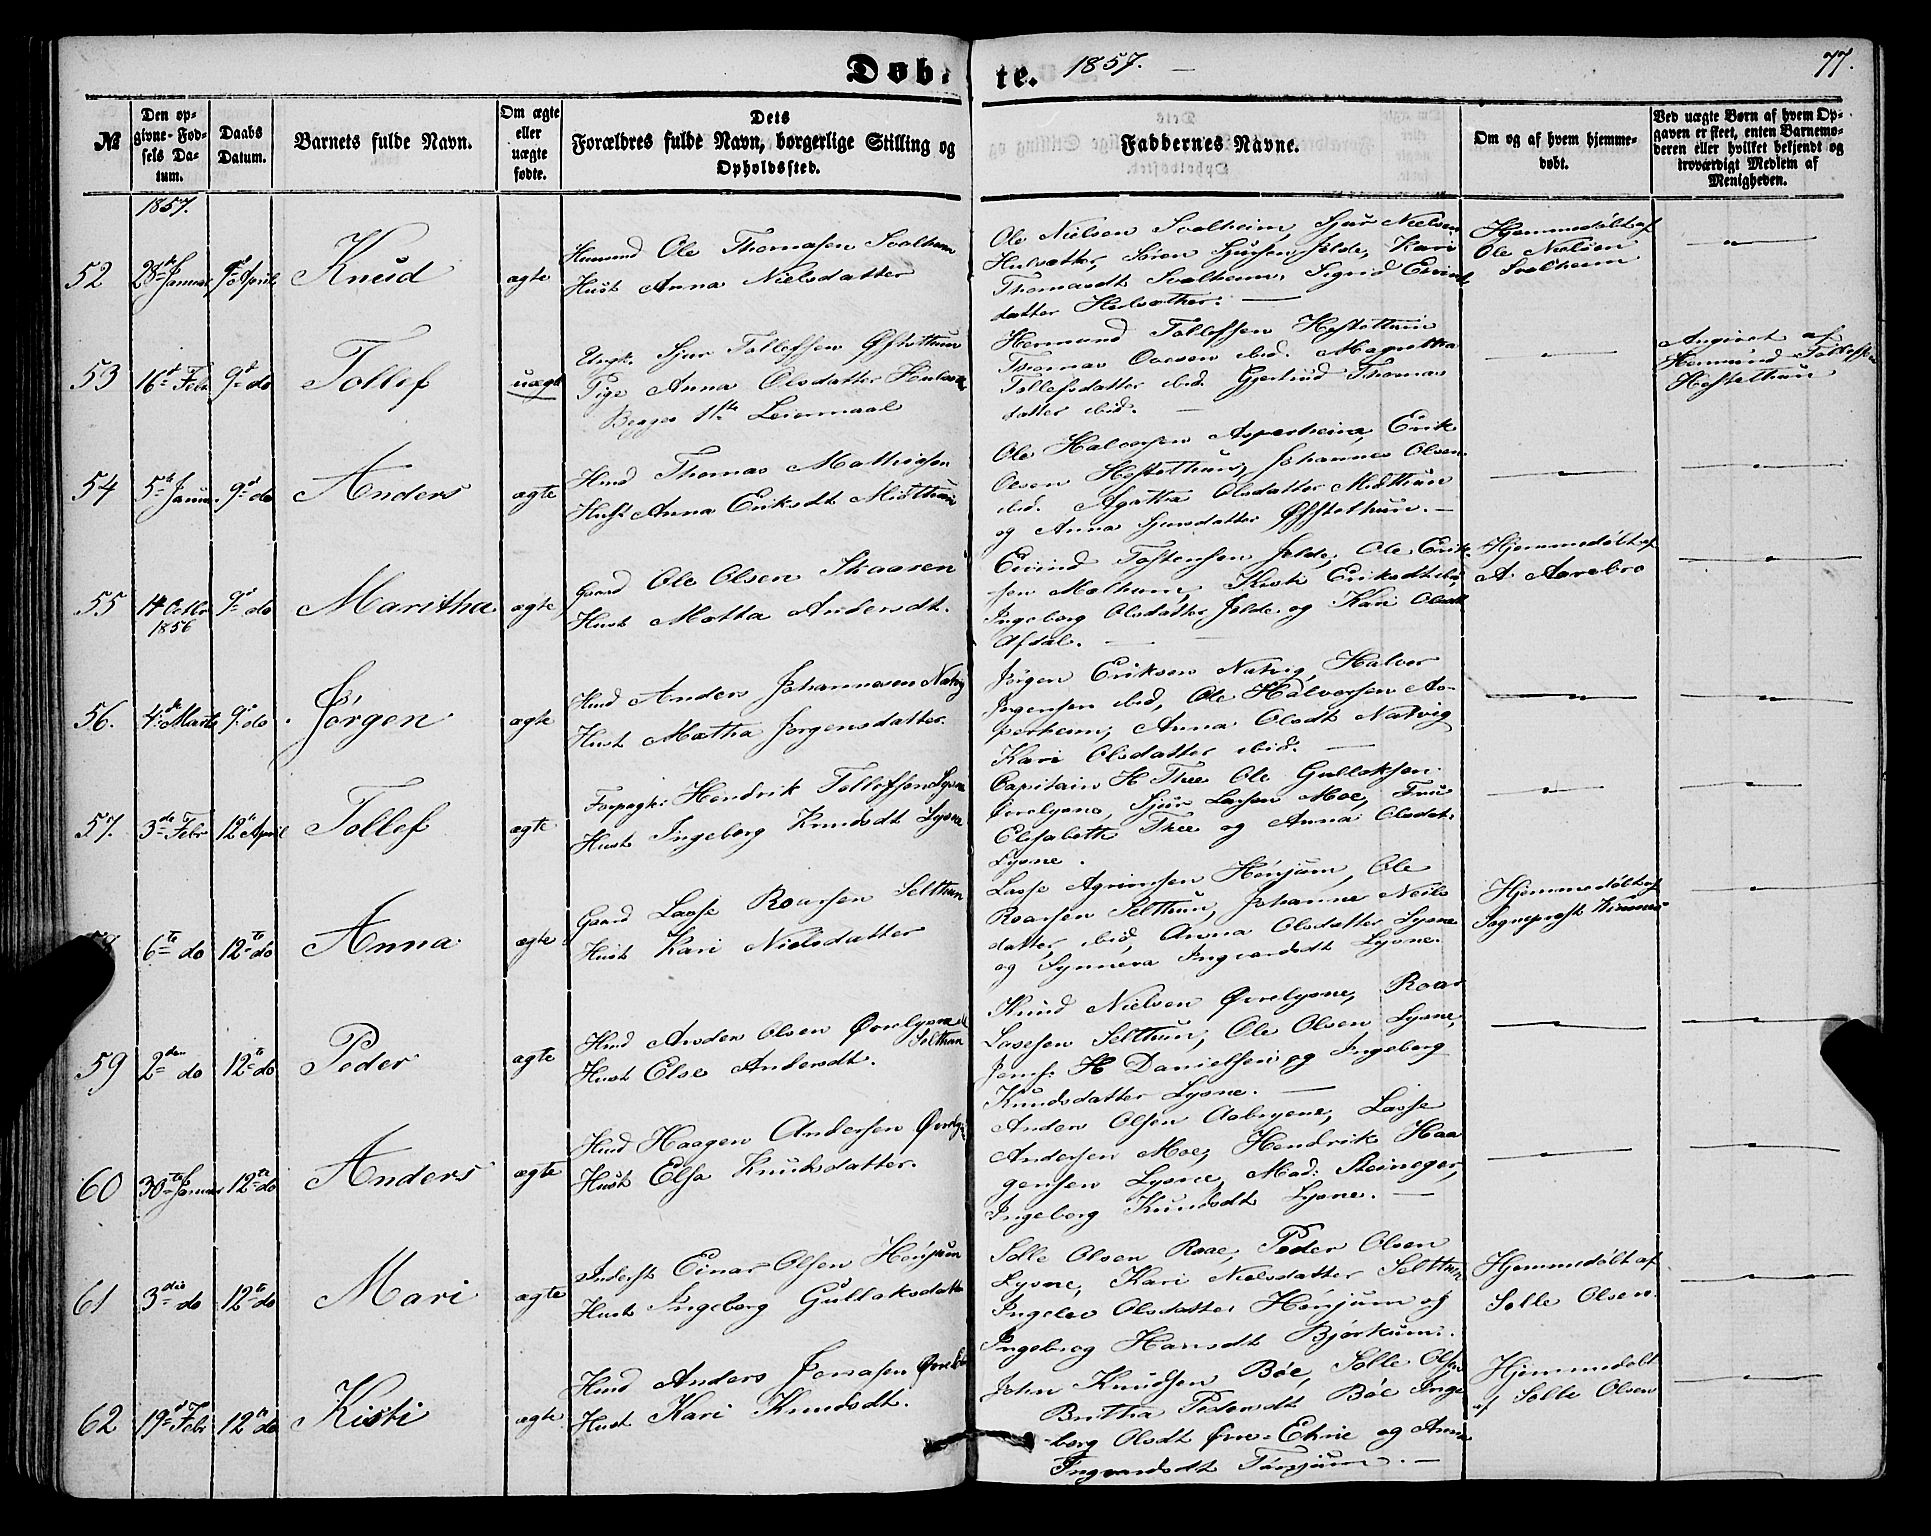 Døbte. 1857. 77.
№
Den opgivne Fødsels Datum.
Daabs Datum.
Barnets fulde Navn.
Om ægte eller uægte fødte.
Dets Forældres fulde Navn, borgerlige Stilling og Opholdssted.
Faddernes Navne.
Om og af hvem hjemmedøbt.
Ved uægte Børn af hvem Opgaven er skeet, enten Barnemoderen eller hvilket bekjendt og troværdigt Medlem af Menigheden.
1857.
52 28de Januar 9de April Knud ægte
Huusmd Ole Thomasen Svalheim
Hust Anna Nielsdatter
Ole Nielsen Svalheim, Sjur Nielsen
Hulsætter, Søren Sjursen Jelde, Kari
Thomasdt Svalheim, Sigrid Eivinds
datter Hulsæther. —
Hjemmedøbt af
Ole Nielsen
Svalheim
53 16de Febr 9de do Tollef uægte
Ungk. Sjur Tollefsen Øfstethun
Pige Anna Olsdatter
Begges 1ste Leiermaal
Hermund Tollefsen Hestethun
Thomas Olesen ibid. Magretha
Tollefsdatter ibid. Gjertrud Thomas
datter ibid. —
Angivet af
Hermund Tollefsen
Hestethun
54 5te Januar 9de do Anders ægte
Hmd Thomas Mathiesen
Hust Anna Eriksdt Midthun
Ole Halvorsen Asperheim, Erik
Olsen Hestethun, Johannes Olsen
ibd. Agatha Olsdatter Midthun
og Anna Sjursdatter Øfstethun. —
55 14 Octbr 1856 9de do Maritha ægte
Gaard Ole Olsen Skaaren
Hust Martha Andersdt.
Eivind Tostensen Jelde, Ole Erik-
sen Molhum, Kisti Eriksdt ibd,
Ingeborg Olsdatter Jelde og Kari Olsdt
Afdal. —
Hjemmedøbt af
A. Aarebro
56. 4de Marts 9de do Jørgen ægte
Hmd Anders Johannesen Natvig
Hust Martha Jørgensdatter.
Jørgen Eriksen Natvig, Halvor
Jørgensen ibid, Ole Halvorsen As-
perheim, Anna Olsdt Natvig
Kari Olsdatter ibid. —
57. 3de Febr 12te April Tollef ægte
Forpagt. Hendrik Tollefsen Lysne
Hust Ingeborg Knudsdt Lysne
Capitain H Thee Ole Gullaksen
Øvrelysne, Sjur Larsen Moe, Fru
Elisabeth Thee og Anna Olsdat.
Lysne.
6te do 12te do Anna ægte
Gaard Lasse Roarsen Selthun
Hust Kari Nielsdatter
Lasse Agrimsen Hønjum, Ole
Roarsen Selthun, Johanne Neils
datter ibid, Anna Olsdatter Lysne
og Synneva Ingvarsdt Lysne.
Hjemmedøbt af
Sogneprest
59 2den do 12te do Peder ægte
Hmd Anders Olsen Øvrelysne
Selthun
Hust Else Andersdt.
Knud Nielsen Øvrelysne, Roar
Lassesen Selthun, Ole Olsen Lysne,
Jomf. H Danielsen og Ingeborg
Knudsdatter Lysne. —
60 30te Januar 12te do Anders ægte
Hmd Haagen Andersen
Hust Elsa Knudsdatter.
Anders Olsen Aabryene, Lasse
Andersen Moe, Hendrik Haa
gensen Lysne, Mad. Steineger,
Ingeborg Knudsdt Lysne. —
61 3die do 12te do Mari ægte
Inderst Einar Olsen Hønjum
Hust Ingeborg Gullaksdatter
Solle Olsen Raae, Peder Olsen
Lysne, Kari Nielsdatter Selthun
Ingelev Olsdatter Hønjum og
Ingeborg Hansdt Bjørkum.
Hjemmedøbt af
Solle Olsen.
62 19de Febr 12te do Kisti ægte
Hmd Anders Jonasen
Hust Kari Knudsdt.
John Knudsen Bøe, Solle Olsen
Britha Pedersdt Bøe Inge
borg Olsdt Øvre-Ehrie og Anna
Ingvarsdt Tønjum. —
Hjemmedøbt
af Solle Olsen